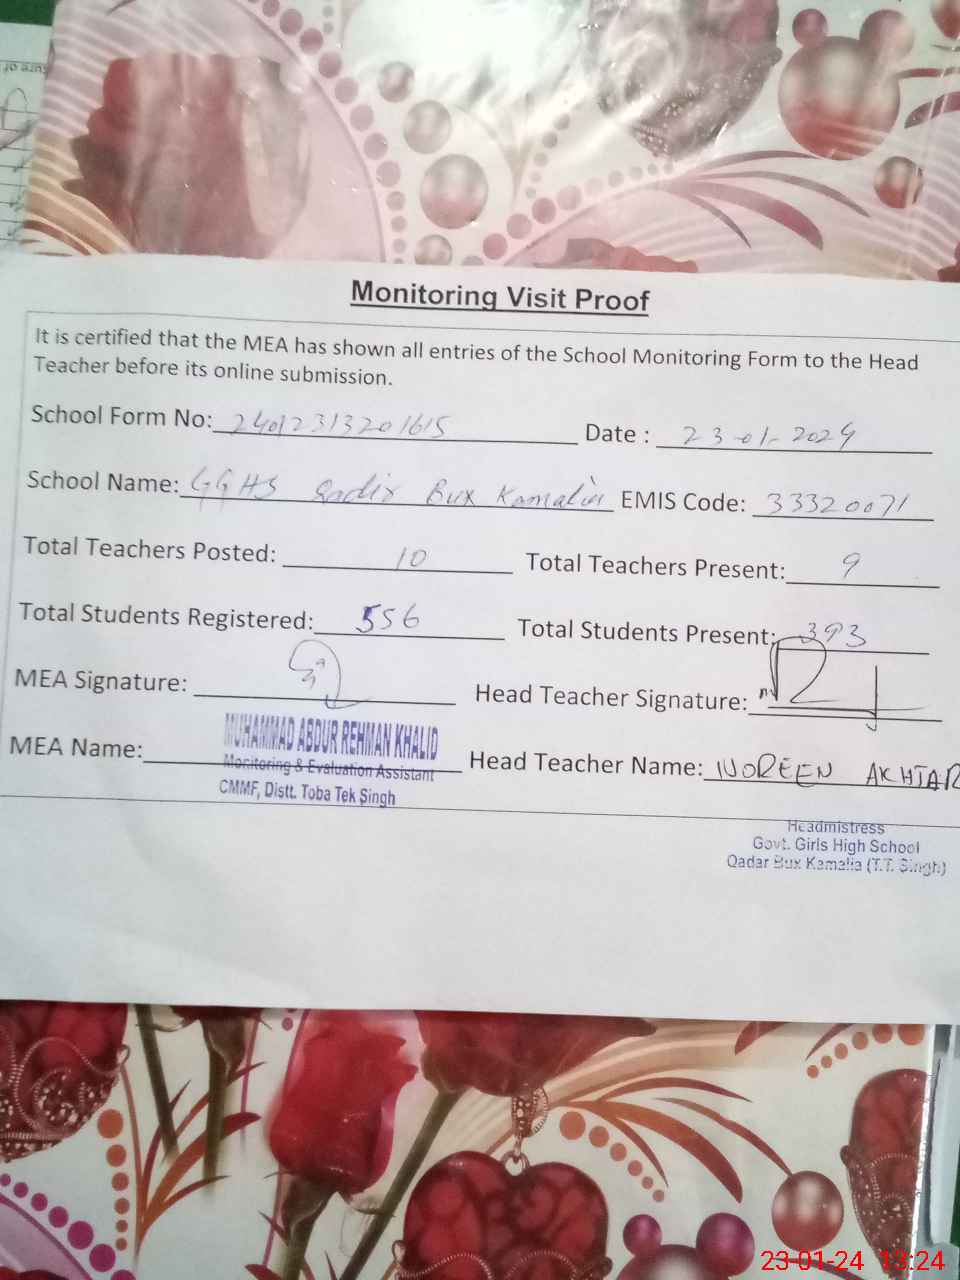 Monitoring Visit Proof
It is certified that the MEA has shown all entries of the School Monitoring Form to the Head
Teacher before its online submission.
School Form No: 24012313201615 Date : 23-01-2024
School Name: GGHS Qadir Bux Kamalia EMIS Code: 33320071
Total Teachers Posted: 10 Total Teachers Present: 9
Total Students Registered: 556 Total Students Present: 393
MEA Signature: Head Teacher Signature:
MEA Name: MUHAMMAD ABDUR REHMAN KHALID Head Teacher Name: NOREEN AKHTAR
Monitoring & Evaluation Assistant
CMMF, Distt. Toba Tek Singh
Headmistress
Govt. Girls High School
Qadar Bux Kamalia (T.T. Singh)
23-01-24 13:24